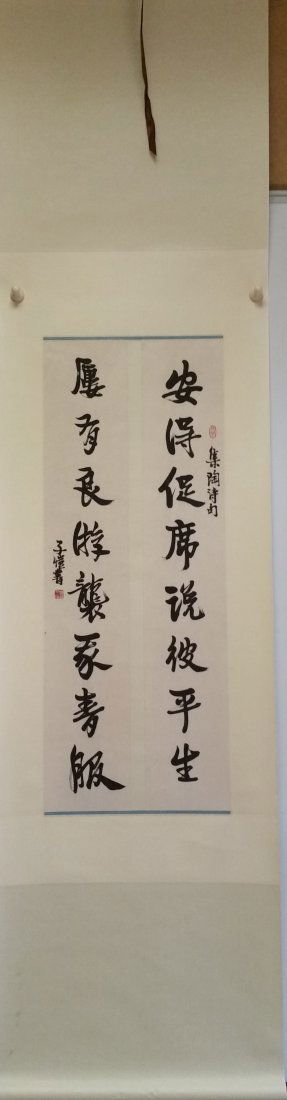 安得促席说彼平生
集陶诗句
屡有良游襲我春服
子愷書